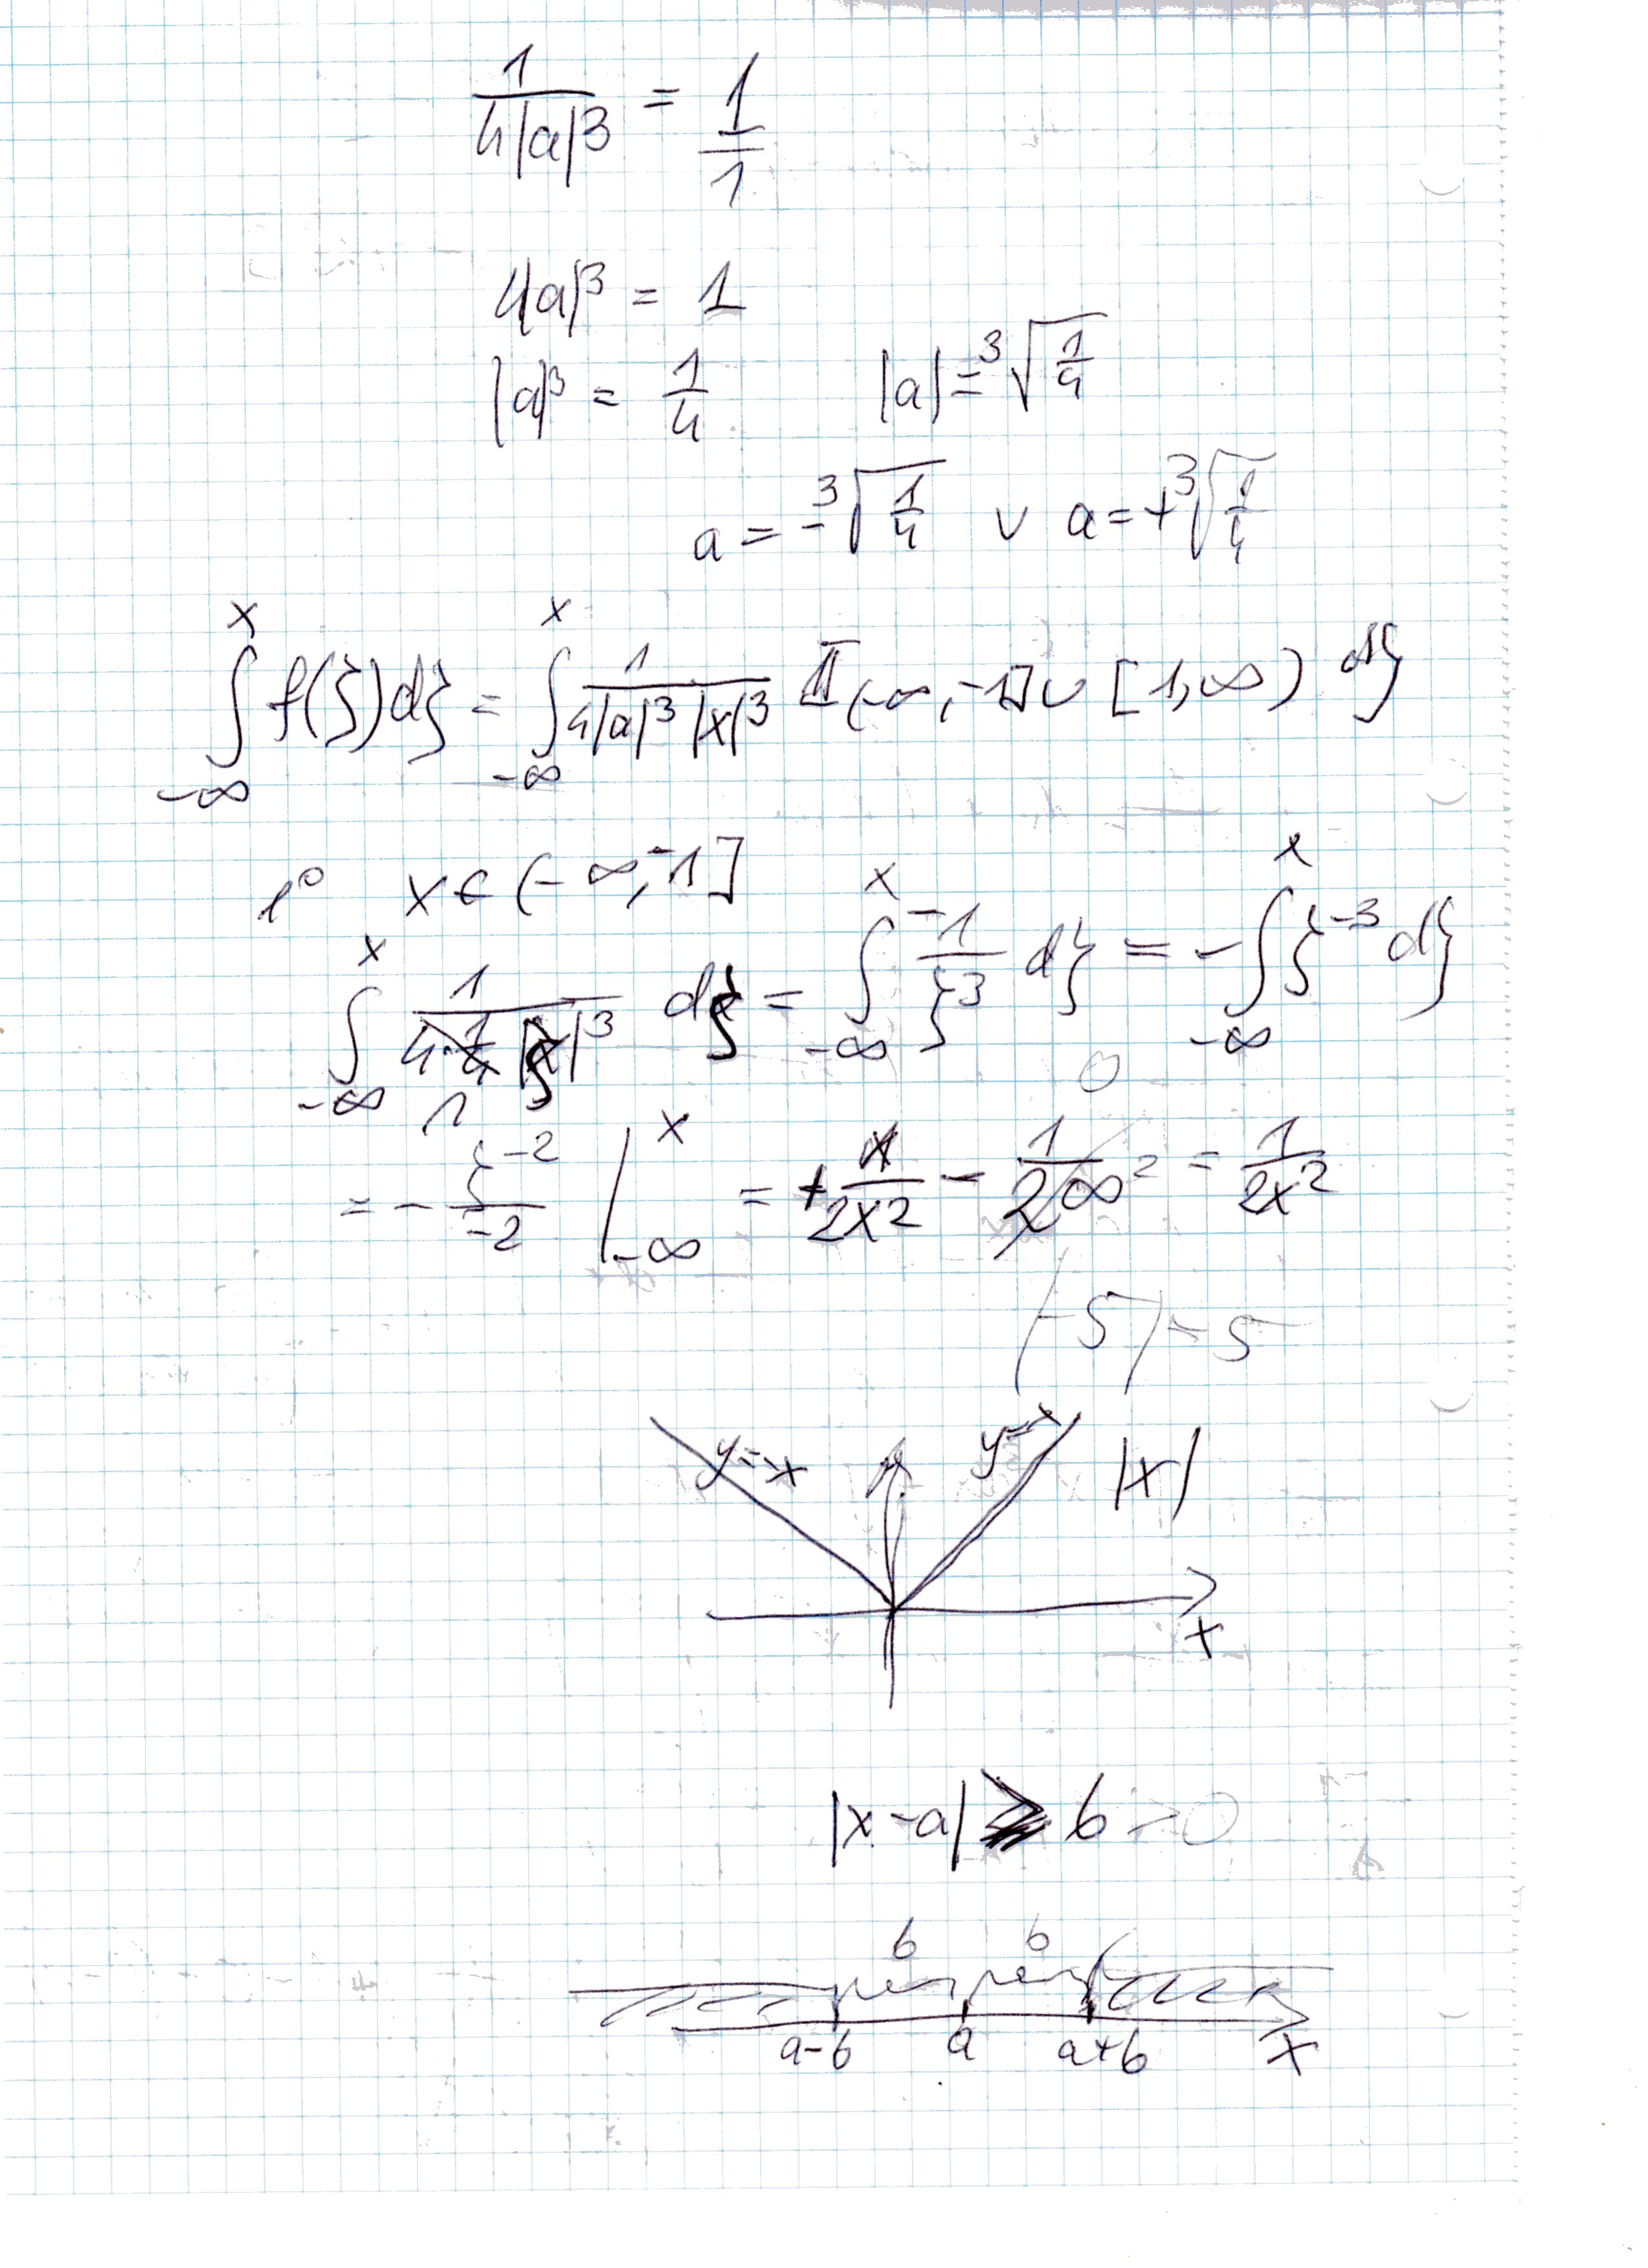 1/(4|a|³) = 1/1
4|a|³ = 1
|a|³ = 1/4   |a| = ³√(1/4)
a = -³√(1/4) ∨ a = +³√(1/4)
∫_{-∞}^{x} f(ξ)dξ = ∫_{-∞}^{x} 1/(4|a|³|x|³) 𝟙(-∞,-1]∪[1,∞) dξ
1° x ∈ (-∞,-1]
∫_{-∞}^{x} 1/(4·1/4|ξ|³) dξ = ∫_{-∞}^{x} -1/ξ³ dξ = -∫_{-∞}^{x} ξ⁻³ dξ
1   0
= - ξ⁻²/-2 |_{-∞}^{x} = + 1/2x² - 1/2∞² = 1/2x²
|-5| = 5
y=-x   y=x   |x|
x
|x-a| ≥ b > 0
b   b
a-b   a   a+b   x